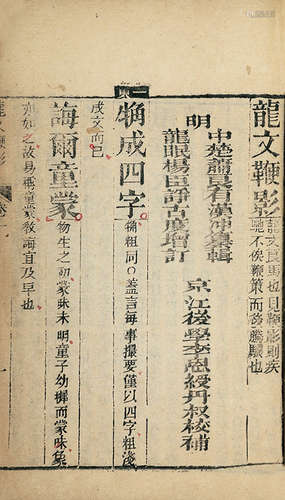 龍文鞭影
龍文良馬也見鞭影則疾
馳不俟鞭策而後騰驤也
明
中楚蕭良有漢冲纂輯
龍眠楊臣諍古度增訂
京江後學李恩綬丹叔校補
觕成四字
觕粗同○蓋言每事撮要僅以四字粗淺
成文而已
誨爾童蒙
物生之初蒙昧未明童子幼穉而蒙昧象
亦如之故易稱童蒙教誨宜及早也